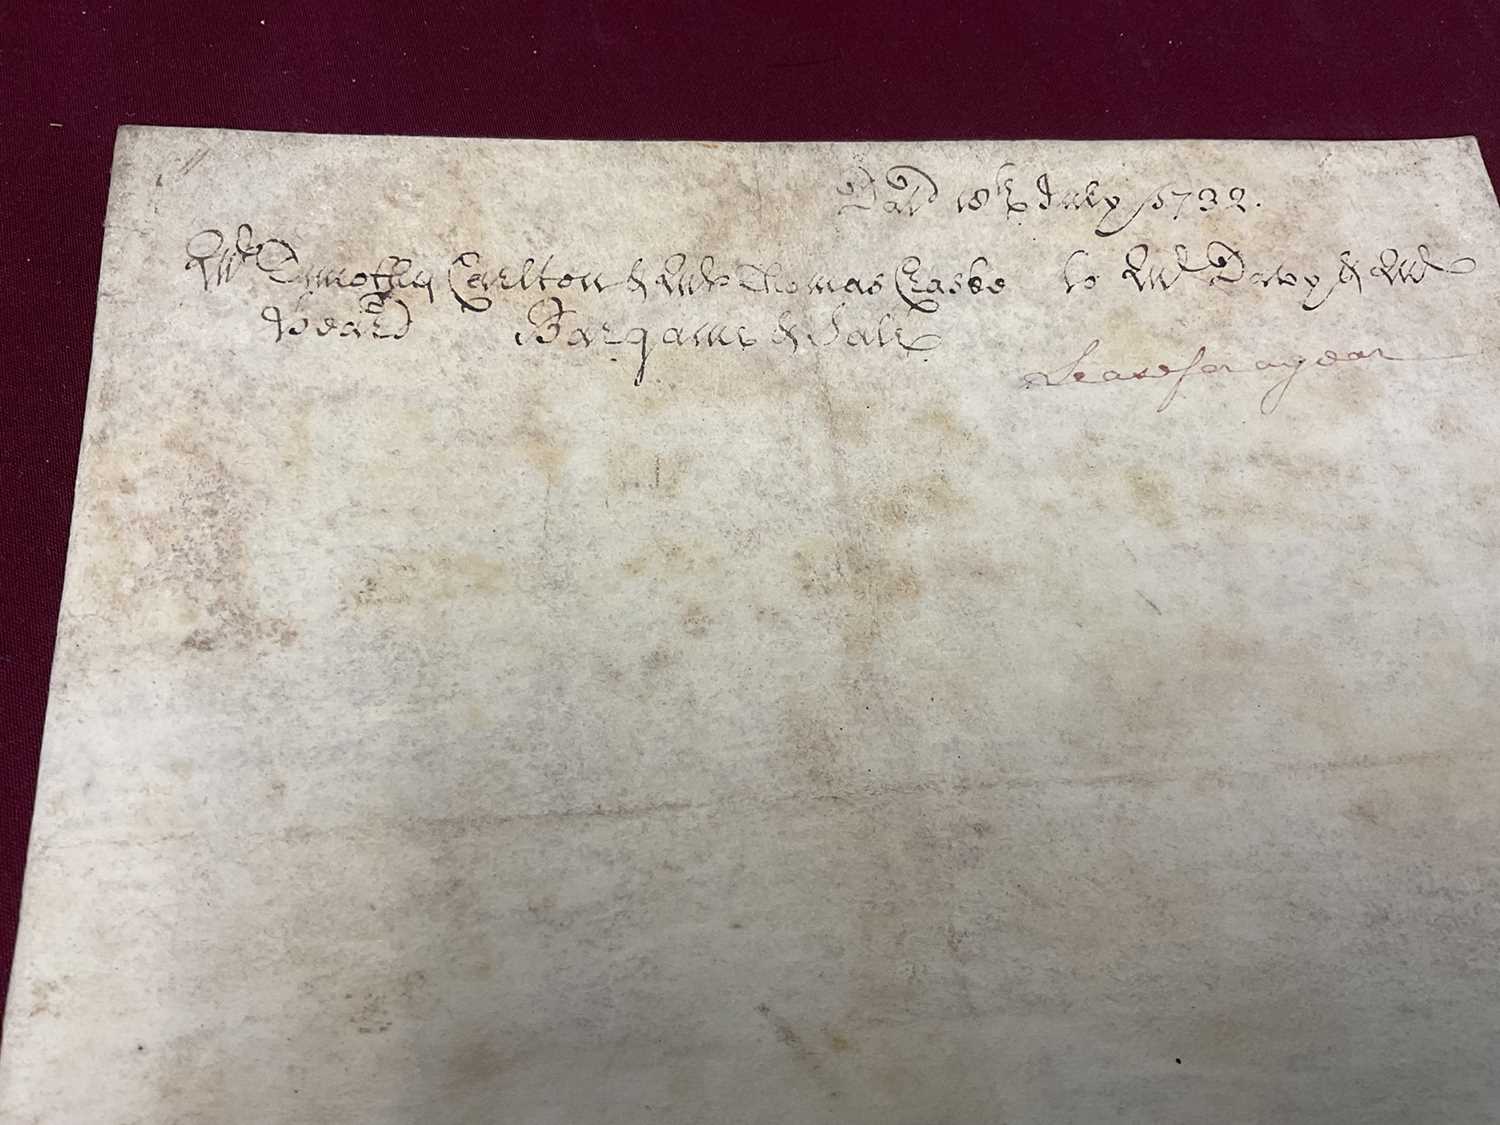 Dat'd 18th July 1732.
Mr Timothy Carlton & Mr Thomas to Mr Davy & Mr
Heard Bargaine & Sale
Lease for a year